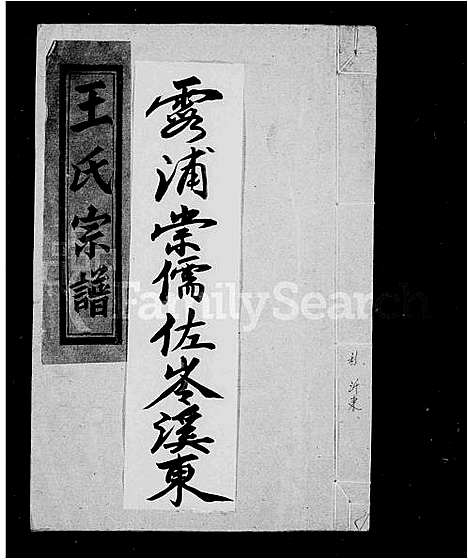 王氏宗譜
雲浦崇儒佐岑溪東
沂東
FamilySearch